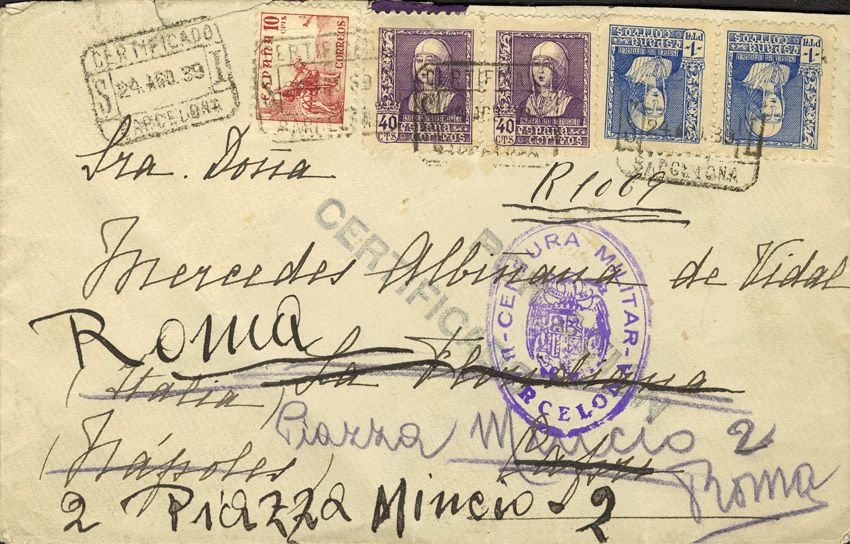 CERTIFICADO
24 AGO. 39
S L
BARCELONA
ESPAÑA 10 CTS
CORREOS
40 CTS
ESPAÑA
CORREOS
40 CTS
ESPAÑA
CORREOS
1 PTA
ESPAÑA
CORREOS
1 PTA
ESPAÑA
CORREOS
BARCELONA
Sra. Doña
R1069
CERTIFIC
Mercedes Albiñana de Vidal
CENSURA MILITAR
BARCELONA
Roma
(Italia) La Floridiana
Piazza Mincio 2
(Nápoles)
Roma
2 Piazza Mincio 2